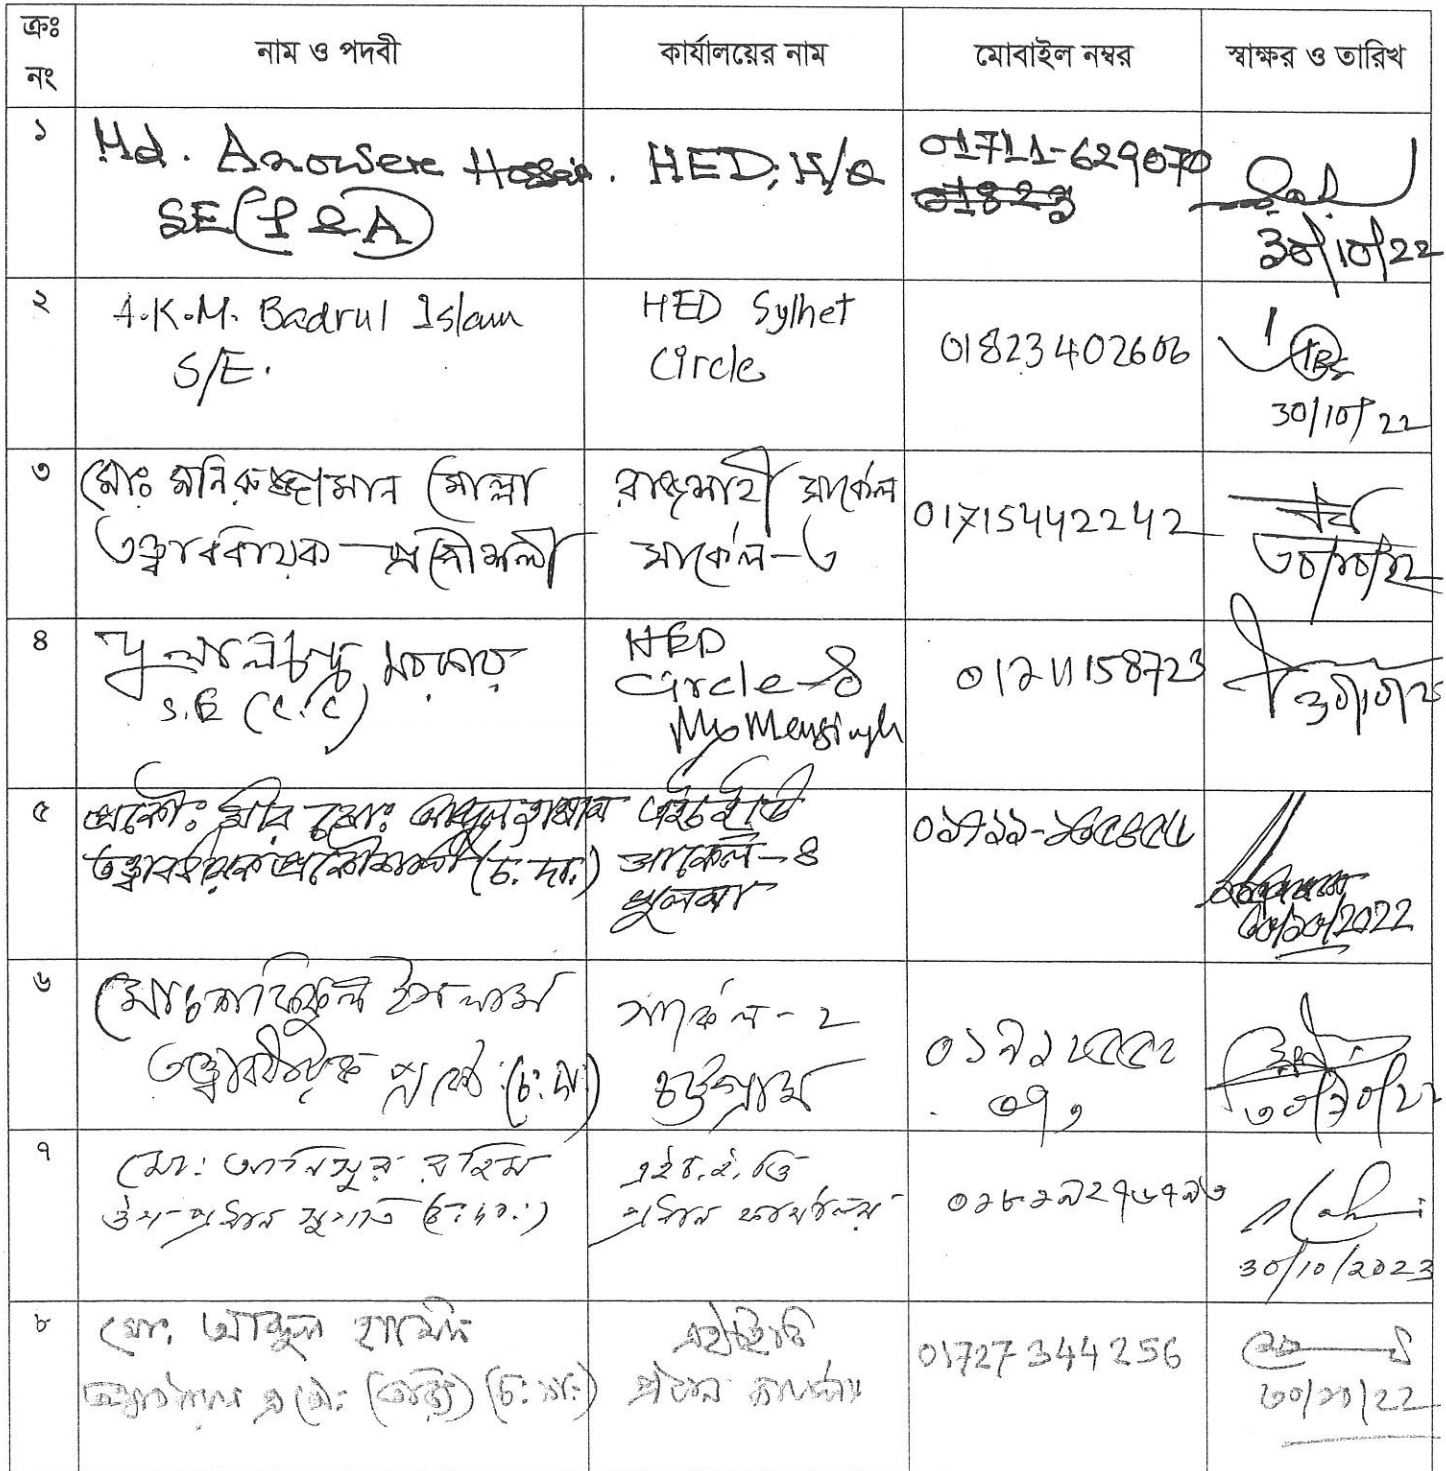 ক্রঃ নং
নাম ও পদবী
কার্যালয়ের নাম
মোবাইল নম্বর
স্বাক্ষর ও তারিখ
১
Md. Anowere Hossain.
SE (P & A)
HED, H/Q
01711-629070
01823
30/10/22
২
A.K.M. Badrul Islam
S/E.
HED Sylhet
Circle
01823402606
30/10/22
৩
মোঃ মনিরুজ্জামান মোল্লা
তত্ত্বাবধায়ক প্রকৌশলী
রাজশাহী সার্কেল
সার্কেল-৩
01715442242
৩০/১০/২২
৪
সরকার
S.E (C.C)
HED
Circle-8
Mymensingh
01711158723
30/10/22
৫
প্রকৌঃ মীর মোঃ
তত্ত্বাবধায়ক প্রকৌশলী (চ. দা.)
এইচইডি
সার্কেল-৪
খুলনা
৩০/১০/2022
৬
ইসলাম
তত্ত্বাবধায়ক প্রকৌ: (চ: দা:)
সার্কেল-২
চট্টগ্রাম
৩০/১০/২২
৭
মো: আনিসুর রহিম
উপ-প্রধান স্থপতি (চ: দা:)
এইচ.ই.ডি
প্রধান কার্যালয়
30/10/2023
৮
মো. আব্দুল হামিদ
তত্ত্বাবধায়ক প্রকৌ: (চ: দা:)
এইচইডি
প্রধান কার্যালয়
01727344256
৩০/১০/২২